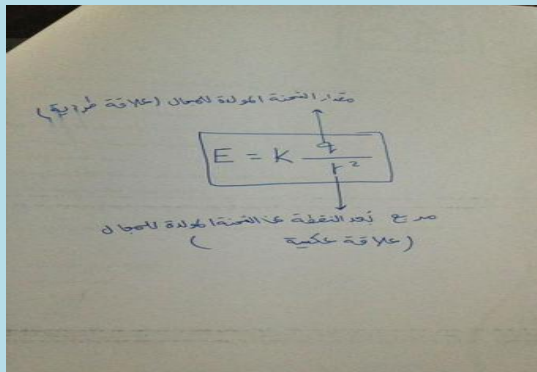 مقدار الشحنة المولدة للمجال (علاقة طردية)
E = K q / r²
مربع بُعد النقطة عن الشحنة المولدة للمجال
(علاقة عكسية)